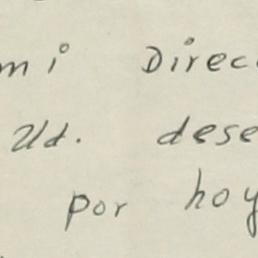 mi Direc
Ud. dese
por hoy